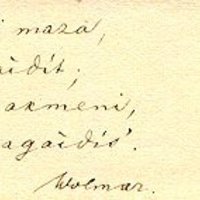 i mazā,
aidīt;
akmeni,
agaidīs.
Wolmar.